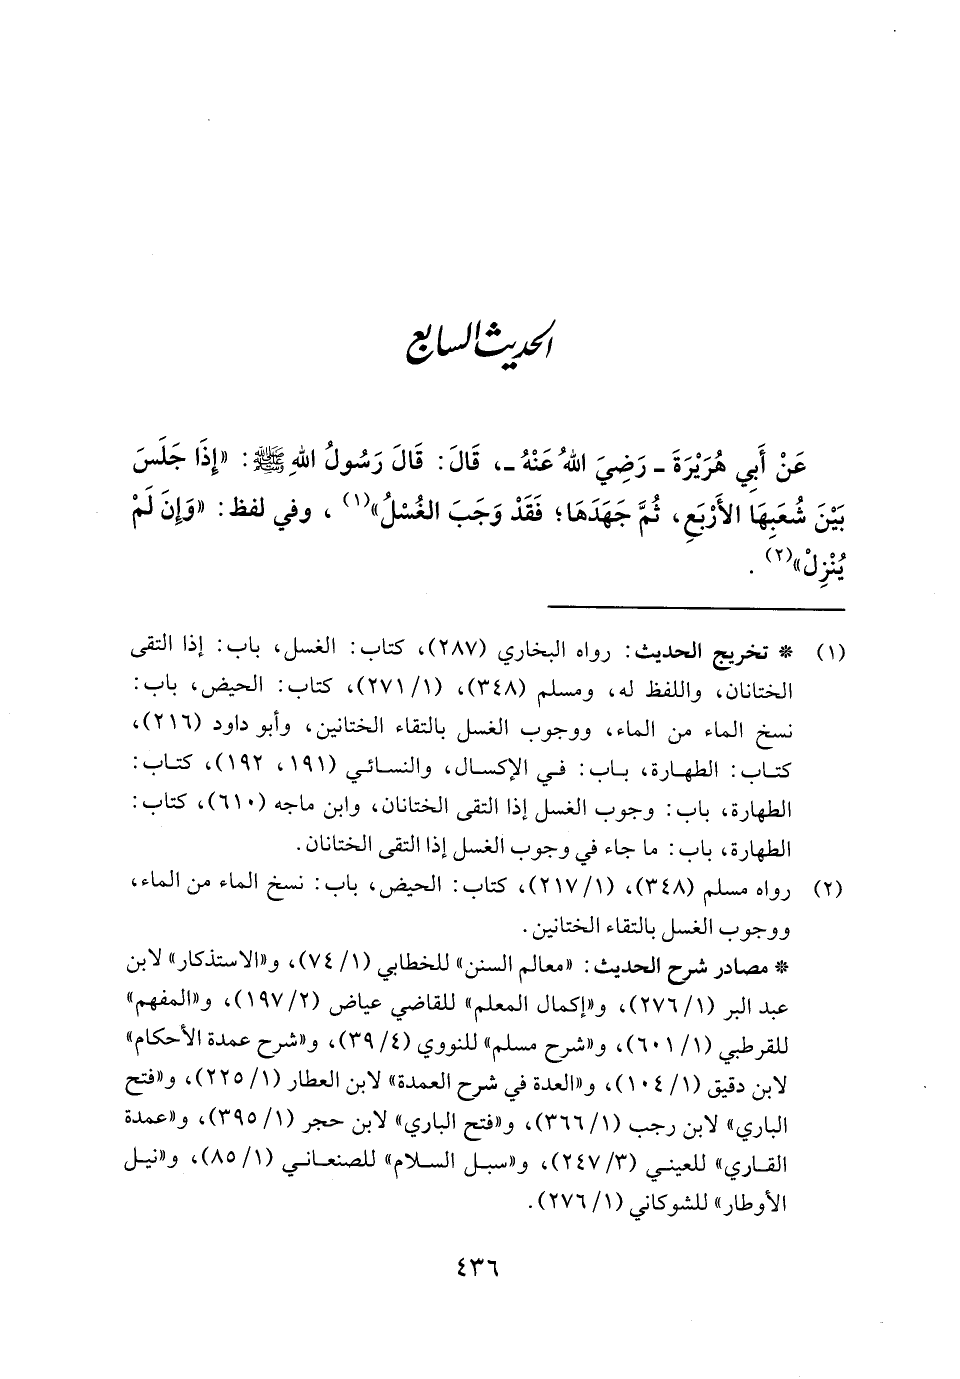 الحديث السابع
عَنْ أَبِي هُرَيْرَةَ ـ رَضِيَ اللهُ عَنْهُ ـ، قَالَ: قَالَ رَسُولُ اللهِ ﷺ: «إِذَا جَلَسَ
بَيْنَ شُعَبِهَا الأَرْبَعِ، ثُمَّ جَهَدَهَا؛ فَقَدْ وَجَبَ الغُسْلُ»(١)، وفي لفظ: «وَإِنَ لَمْ
يُنْزِلْ»(٢).
(١) * تخريج الحديث: رواه البخاري (٢٨٧)، كتاب: الغسل، باب: إذا التقى
الختانان، واللفظ له، ومسلم (٣٤٨)، (١/ ٢٧١)، كتاب: الحيض، باب:
نسخ الماء من الماء، ووجوب الغسل بالتقاء الختانين، وأبو داود (٢١٦)،
كتاب: الطهارة، باب: في الإكسال، والنسائي (١٩١، ١٩٢)، كتاب:
الطهارة، باب: وجوب الغسل إذا التقى الختانان، وابن ماجه (٦١٠)، كتاب:
الطهارة، باب: ما جاء في وجوب الغسل إذا التقى الختانان.
(٢) رواه مسلم (٣٤٨)، (١/ ٢١٧)، كتاب: الحيض، باب: نسخ الماء من الماء،
ووجوب الغسل بالتقاء الختانين.
* مصادر شرح الحديث: «معالم السنن» للخطابي (١/ ٧٤)، و«الاستذكار» لابن
عبد البر (١/ ٢٧٦)، و«إكمال المعلم» للقاضي عياض (٢/ ١٩٧)، و«المفهم»
للقرطبي (١/ ٦٠١)، و«شرح مسلم» للنووي (٤/ ٣٩)، و«شرح عمدة الأحكام»
لابن دقيق (١/ ١٠٤)، و«العدة في شرح العمدة» لابن العطار (١/ ٢٢٥)، و«فتح
الباري» لابن رجب (١/ ٣٦٦)، و«فتح الباري» لابن حجر (١/ ٣٩٥)، و«عمدة
القاري» للعيني (٣/ ٢٤٧)، و«سبل السلام» للصنعاني (١/ ٨٥)، و«نيل
الأوطار» للشوكاني (١/ ٢٧٦).
٤٣٦